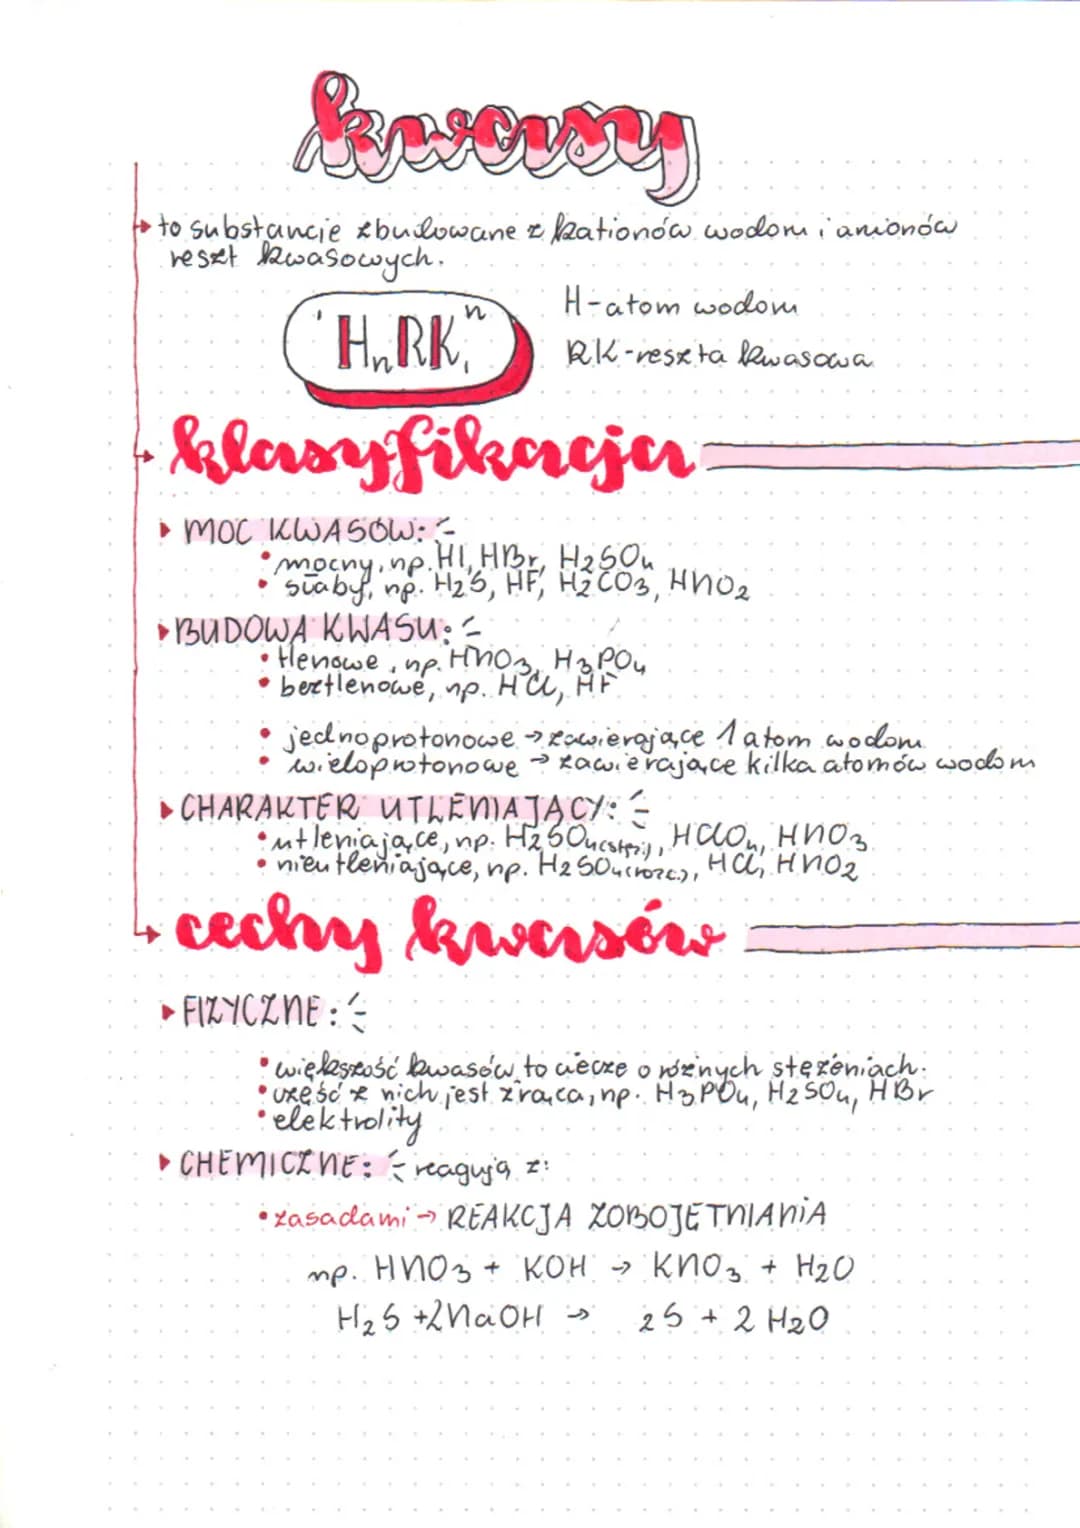 kwasy
to substancje zbudowane z kationów wodoru i anionów
reszt kwasowych.
ᴵHₙRKᵢⁿ
H-atom wodoru
RK-reszta kwasowa
klasyfikacja
MOC KWASÓW:
mocny, np. HI, HBr, H2SO4
słaby, np. H2S, HF, H2CO3, HNO2
BUDOWA KWASU:
tlenowe, np. HNO3, H3PO4
beztlenowe, np. HCl, HF
jednoprotonowe → zawierające 1 atom wodoru
wieloprotonowe → zawierające kilka atomów wodoru
CHARAKTER UTLENIAJĄCY:
utleniające, np. H2SO4(stęż.), HClO4, HNO3
nieutleniające, np. H2SO4(rozc.), HCl, HNO2
cechy kwasów
FIZYCZNE:
większość kwasów to ciecze o różnych stężeniach.
część z nich jest żrąca, np. H3PO4, H2SO4, HBr
elektrolity
CHEMICZNE: reagują z:
zasadami → REAKCJA ZOBOJĘTNIANIA
np. HNO3 + KOH → KNO3 + H2O
H2S + 2NaOH → 2S + 2H2O